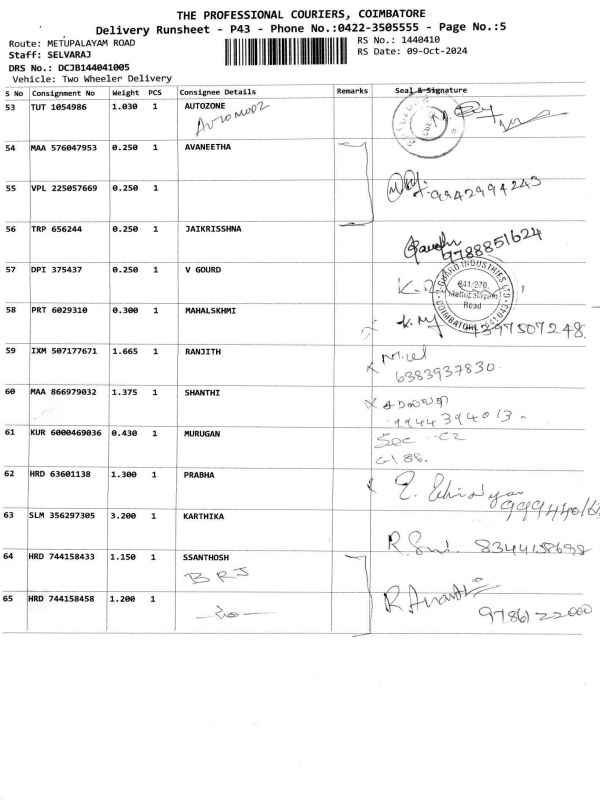 THE PROFESSIONAL COURIERS, COIMBATORE
Delivery Runsheet - P43 - Phone No.:0422-3505555 - Page No.:5
Route: METUPALAYAM ROAD
RS No.: 1440410
Staff: SELVARAJ
RS Date: 09-Oct-2024
DRS No.: DCJB144041005
Vehicle: Two Wheeler Delivery
S No Consignment No Weight PCS Consignee Details Remarks Seal & Signature
53 TUT 1054986 1.030 1 AUTOZONE
54 MAA 576047953 0.250 1 AVANEETHA
55 VPL 225057669 0.250 1 9942994243
56 TRP 656244 0.250 1 JAIKRISSHNA
9788851624
57 DPI 375437 0.250 1 V GOURD
V-GUARD INDUSTRIES LTD
Mettupalayam
Road
COIMBATORE-641 043
58 PRT 6029310 0.300 1 MAHALSKHMI
9397507248
59 IXM 507177671 1.665 1 RANJITH
6383937830.
60 MAA 866979032 1.375 1 SHANTHI
9944394013-
61 KUR 6000469036 0.430 1 MURUGAN
Sec -C2
62 HRD 63601138 1.300 1 PRABHA
63 SLM 356297305 3.200 1 KARTHIKA
8344158698
64 HRD 744158433 1.150 1 SSANTHOSH
BRJ
65 HRD 744158458 1.200 1
9786122000